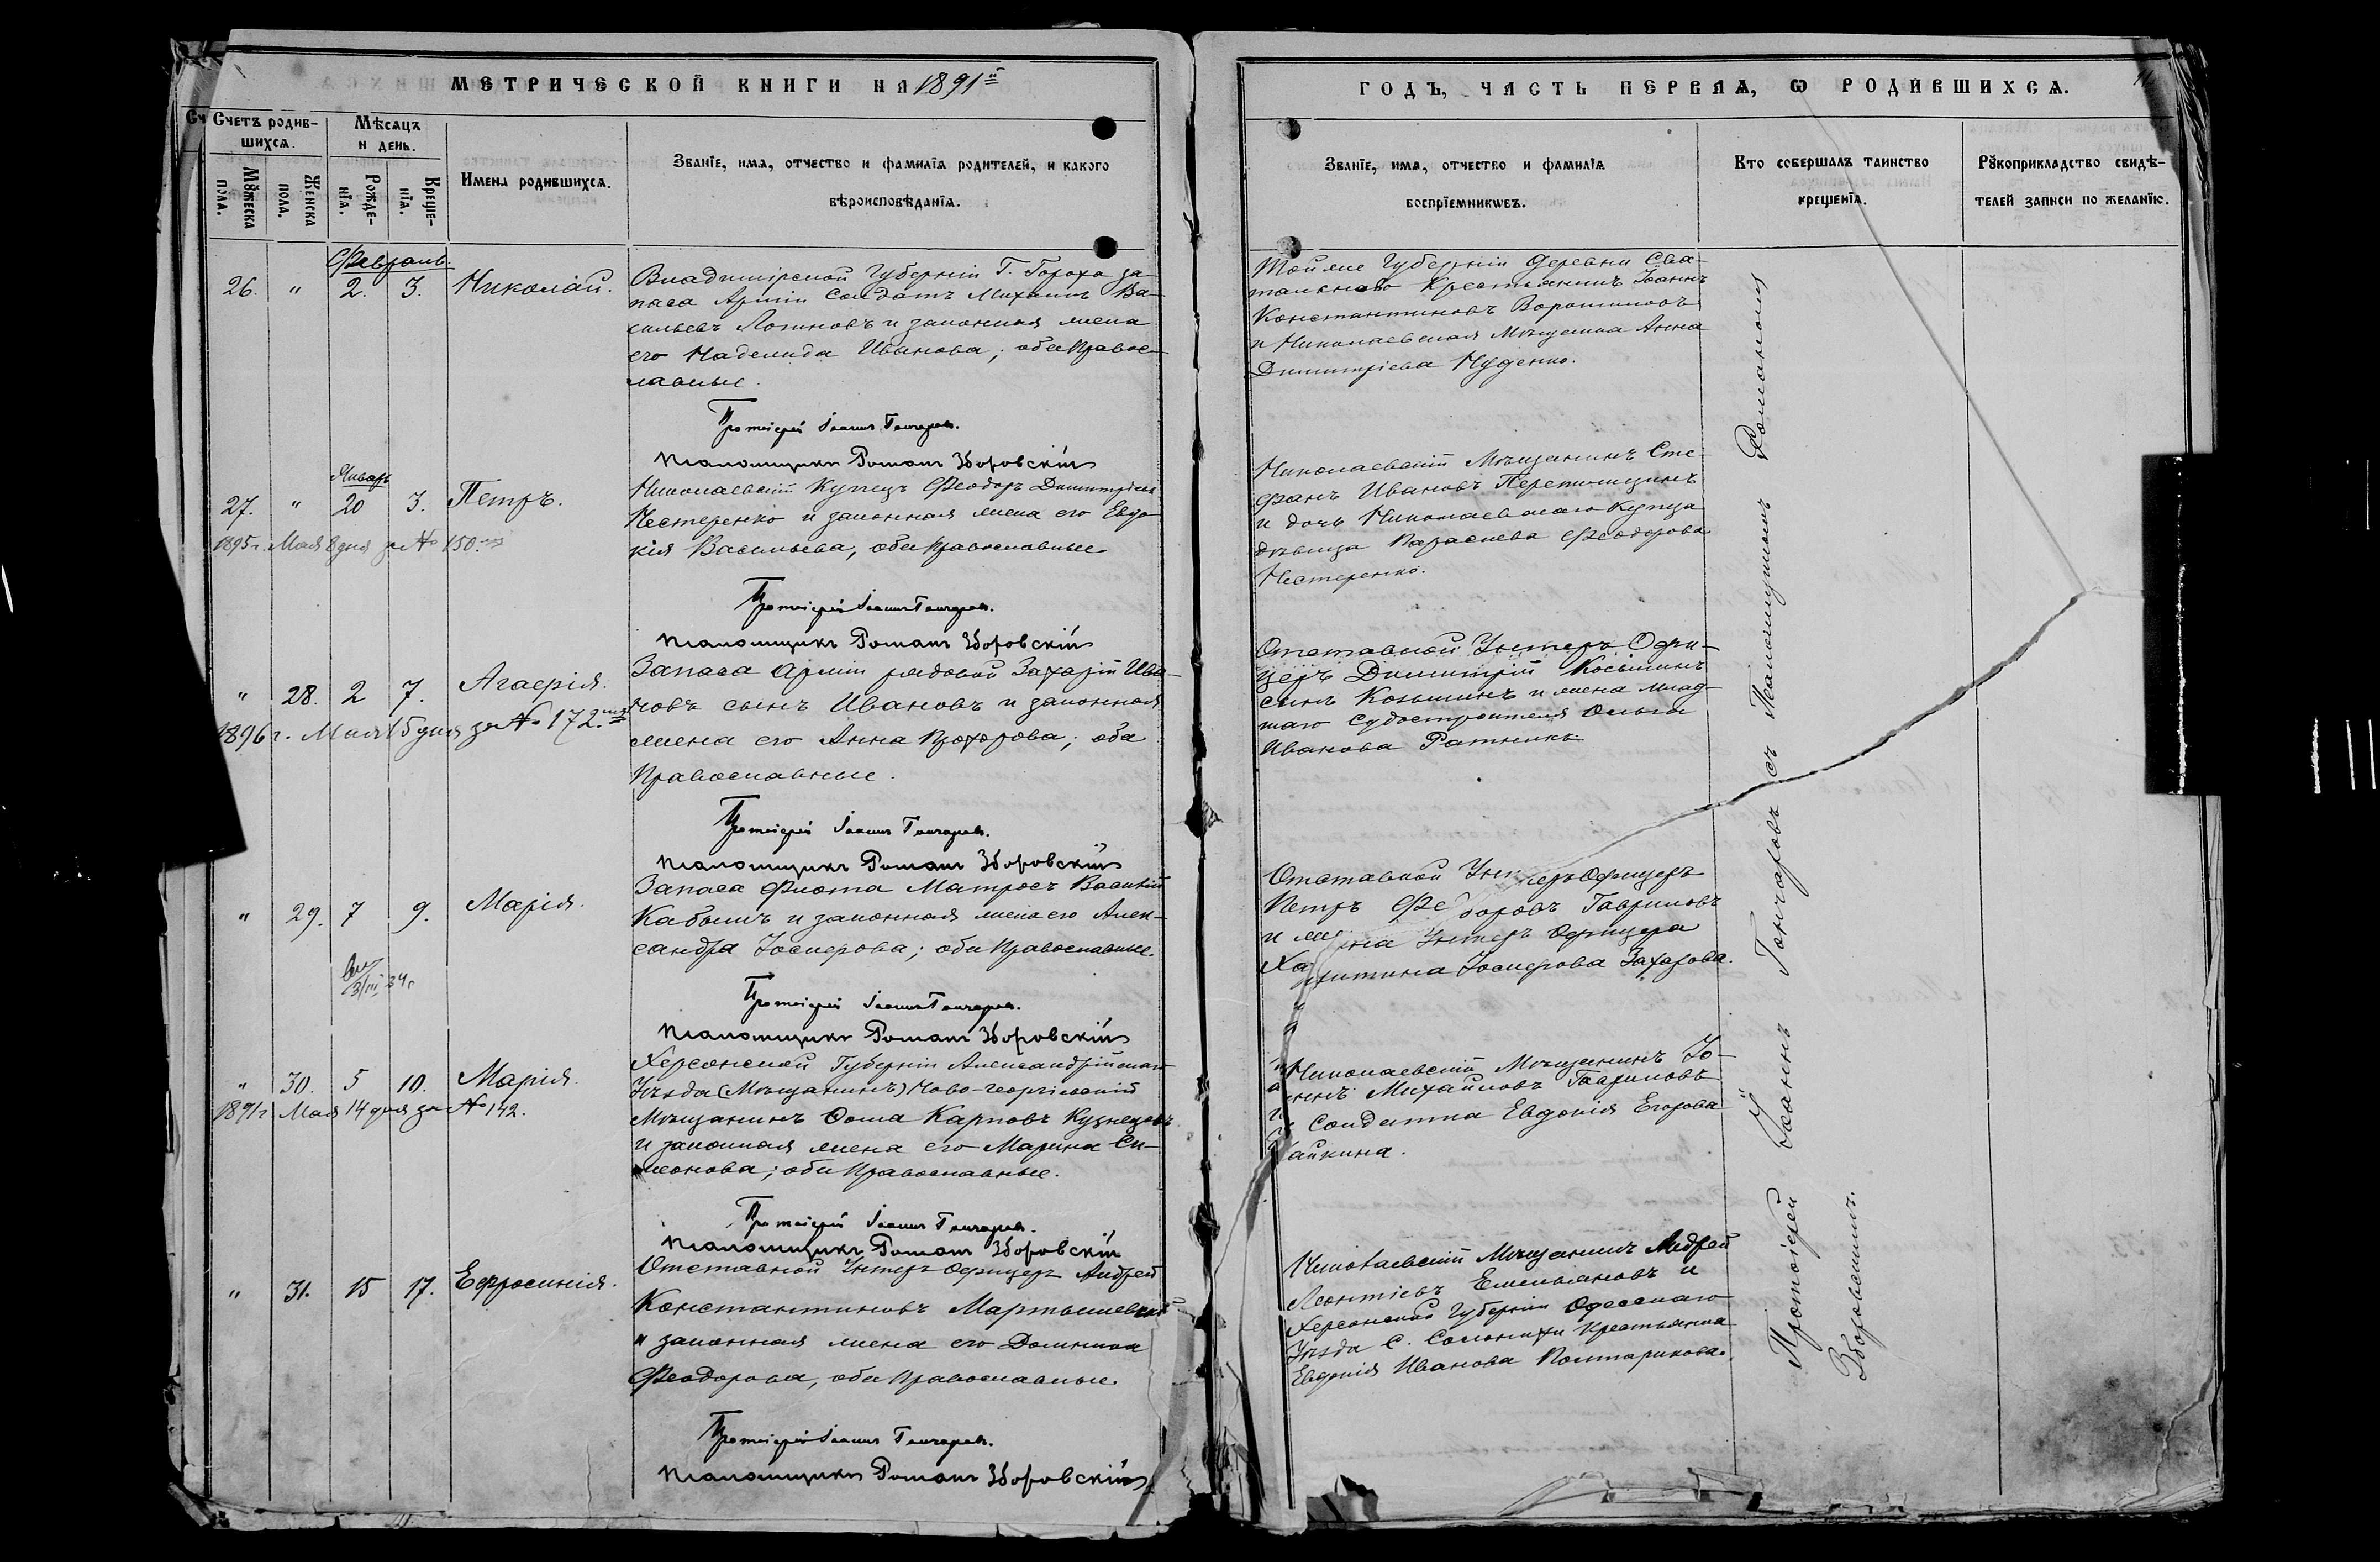 МЕТРИЧЕСКОЙ КНИГИ НА 1891й
Счетъ родив-
шихся.
Мѣсяцъ
и день.
Мꙋжеска
пола.
Женска
пола.
Рожде-
нїя.
Креще-
нїя.
Имена родившихся.
Званїе, имя, отчество и фамилїя родителей, и какого
вѣроисповѣданїя.
Февраль.
26. " 2. 3. Николай.
Владимірской Губерніи Г. Гороха за-
паса Арміи Солдатъ Михаилъ Ва-
сильевъ Логиновъ и законная жена
его Надежда Иванова; оба Правос-
лавные.
Протоіерей Іоаннъ Гончаровъ.
Псаломщикъ Романъ Зборовскій
Январь
27. " 20 3. Петръ.
1895 г. Мая 8 дня за № 150.
Николаевскій Купецъ Феодоръ Димитріевъ
Нестеренко и законная жена его Евдо-
кія Васильева, оба Православные
Протоіерей Іоаннъ Гончаровъ.
Псаломщикъ Романъ Зборовскій
" 28. 2 7. Агаѳія.
1896 г. Мая 15 дня за № 172.
Запаса Арміи рядовой Захарій Ива-
новъ сынъ Ивановъ и законная
жена его Анна Прохорова; оба
Православные.
Протоіерей Іоаннъ Гончаровъ.
Псаломщикъ Романъ Зборовскій
" 29. 7 9. Марія.
3/III 34 г
Запаса Флота Матросъ Василій
Кабышъ и законная жена его Алек-
сандра Іосифова; оба Православные.
Протоіерей Іоаннъ Гончаровъ.
Псаломщикъ Романъ Зборовскій
" 30. 5 10. Марія.
1891 г. Мая 14 дня за № 142.
Херсонской Губерніи Александрійскаго
Уѣзда (Мѣщанинъ) Ново-георгіевскій
Мѣщанинъ Ѳома Карповъ Кузнецовъ
и законная жена его Марина Си-
меонова; оба Православные.
Протоіерей Іоаннъ Гончаровъ.
Псаломщикъ Романъ Зборовскій
" 31. 15 17. Ефросинія.
Отставной Унтеръ Офицеръ Андрей
Константиновъ Мартышевскій
и законная жена его Домникія
Феодорова, оба Православные.
Протоіерей Іоаннъ Гончаровъ.
Псаломщикъ Романъ Зборовскій
ГОДЪ, ЧАСТЬ ПЕРВАЯ, Ѡ РОДИВШИХСЯ.
Званїе, имя, отчество и фамилїя
воспрїемникѡвъ.
Кто совершалъ таинство
крещенїя.
Рꙋкоприкладство свидѣ-
телей записи по желанїю.
Той же Губерніи Деревни Сва-
Крестьянинъ Іоаннъ
Константиновъ Воротиловъ
и Николаевская Мѣщанка Анна
Димитріева Нуденко.
Николаевскій Мѣщанинъ Сте-
фанъ Ивановъ Перетищинъ
и дочь Николаевскаго Купца
дѣвица Параскева Феодорова
Нестеренко.
Отставной Унтеръ Офи-
церъ Димитрій Косьминъ
сынъ Козьминъ и жена млад-
шаго Судостроителя Ольга
Иванова Ратникъ.
Отставной Унтеръ Офицеръ
Петръ Федоровъ Гавриловъ
и жена Унтеръ Офицера
Харитина Іосифова Захарова.
Николаевскій Мѣщанинъ Іо-
аннъ Михайловъ Гавриловъ
и Солдатка Евдокія Егорова
Николаевскій Мѣщанинъ Андрей
Леонтіевъ Емельяновъ и
Херсонской Губерніи Одесскаго
Уѣзда С. Солонихи Крестьянка
Евдокія Иванова Полтарикова.
Протоіерей Іоаннъ Гончаровъ съ Псаломщикомъ Романомъ
Зборовскимъ.